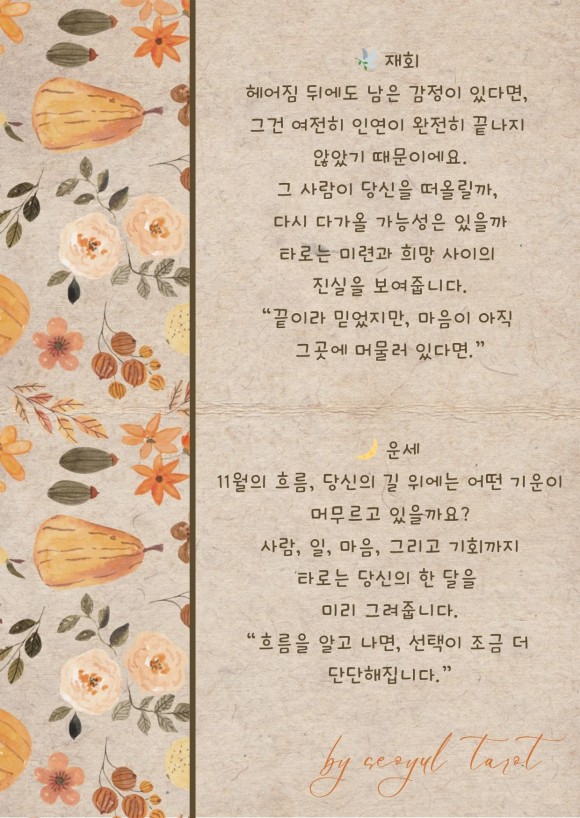 🕊️ 재회
헤어짐 뒤에도 남은 감정이 있다면,
그건 여전히 인연이 완전히 끝나지
않았기 때문이에요.
그 사람이 당신을 떠올릴까,
다시 다가올 가능성은 있을까
타로는 미련과 희망 사이의
진실을 보여줍니다.
“끝이라 믿었지만, 마음이 아직
그곳에 머물러 있다면.”
🌙 운세
11월의 흐름, 당신의 길 위에는 어떤 기운이
머무르고 있을까요?
사람, 일, 마음, 그리고 기회까지
타로는 당신의 한 달을
미리 그려줍니다.
“흐름을 알고 나면, 선택이 조금 더
단단해집니다.”
by seoyul tarot